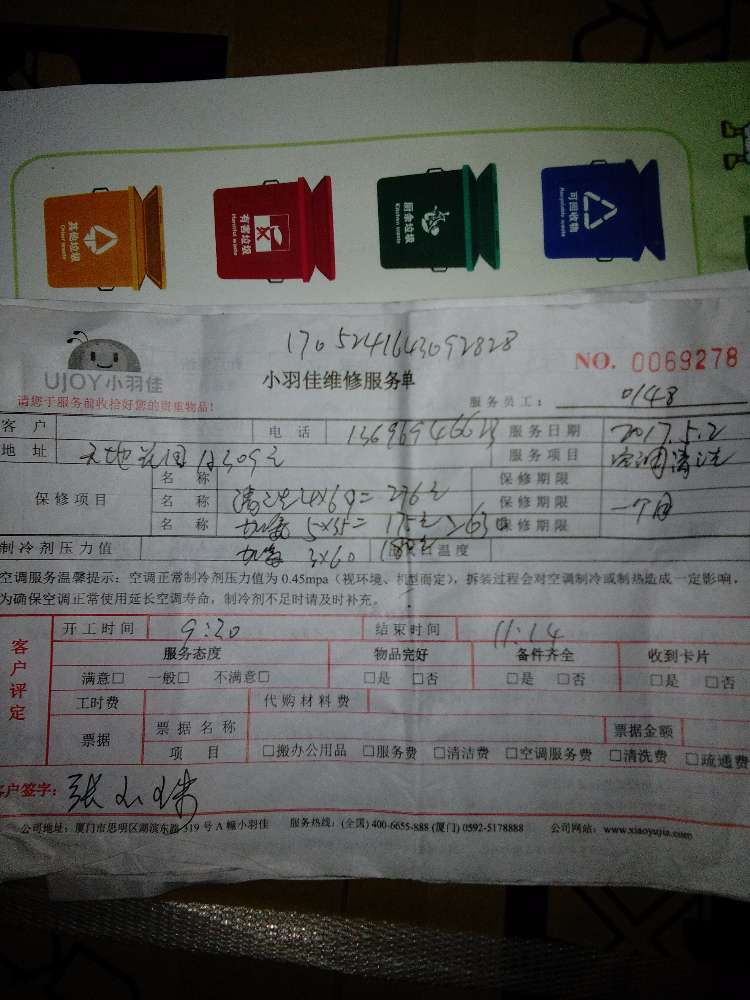 其他垃圾
Other waste
有害垃圾
Harmful waste
厨余垃圾
Kitchen waste
可回收物
Recyclable waste
1705241643092828
UJOY小羽佳
小羽佳维修服务单
NO. 0069278
请您于服务前收拾好您的贵重物品!
服务员工: 0148
客户 电话 服务日期 2017.5.2
地址 服务项目 空调清洗
保修项目 名称 保修期限
名称 保修期限 一个月
名称 5×35= 175元 保修期限
制冷剂压力值 3×60 温度
空调服务温馨提示: 空调正常制冷剂压力值为 0.45mpa (视环境、机型而定), 拆装过程会对空调制冷或制热造成一定影响,
为确保空调正常使用延长空调寿命, 制冷剂不足时请及时补充。
客户评定
开工时间 9:20 结束时间 11:14
服务态度 物品完好 备件齐全 收到卡片
满意□ 一般□ 不满意□ □是 □否 □是 □否 □是 □否
工时费 代购材料费
票据 票据名称 票据金额
项目 □搬办公用品 □服务费 □清洁费 □空调服务费 □清洗费 □疏通费
客户签字:
公司地址: 厦门市思明区湖滨东路 319 号 A 幢小羽佳 服务热线: (全国) 400-6655-888 (厦门) 0592-5178888 公司网站: www.xiaoyujia.com